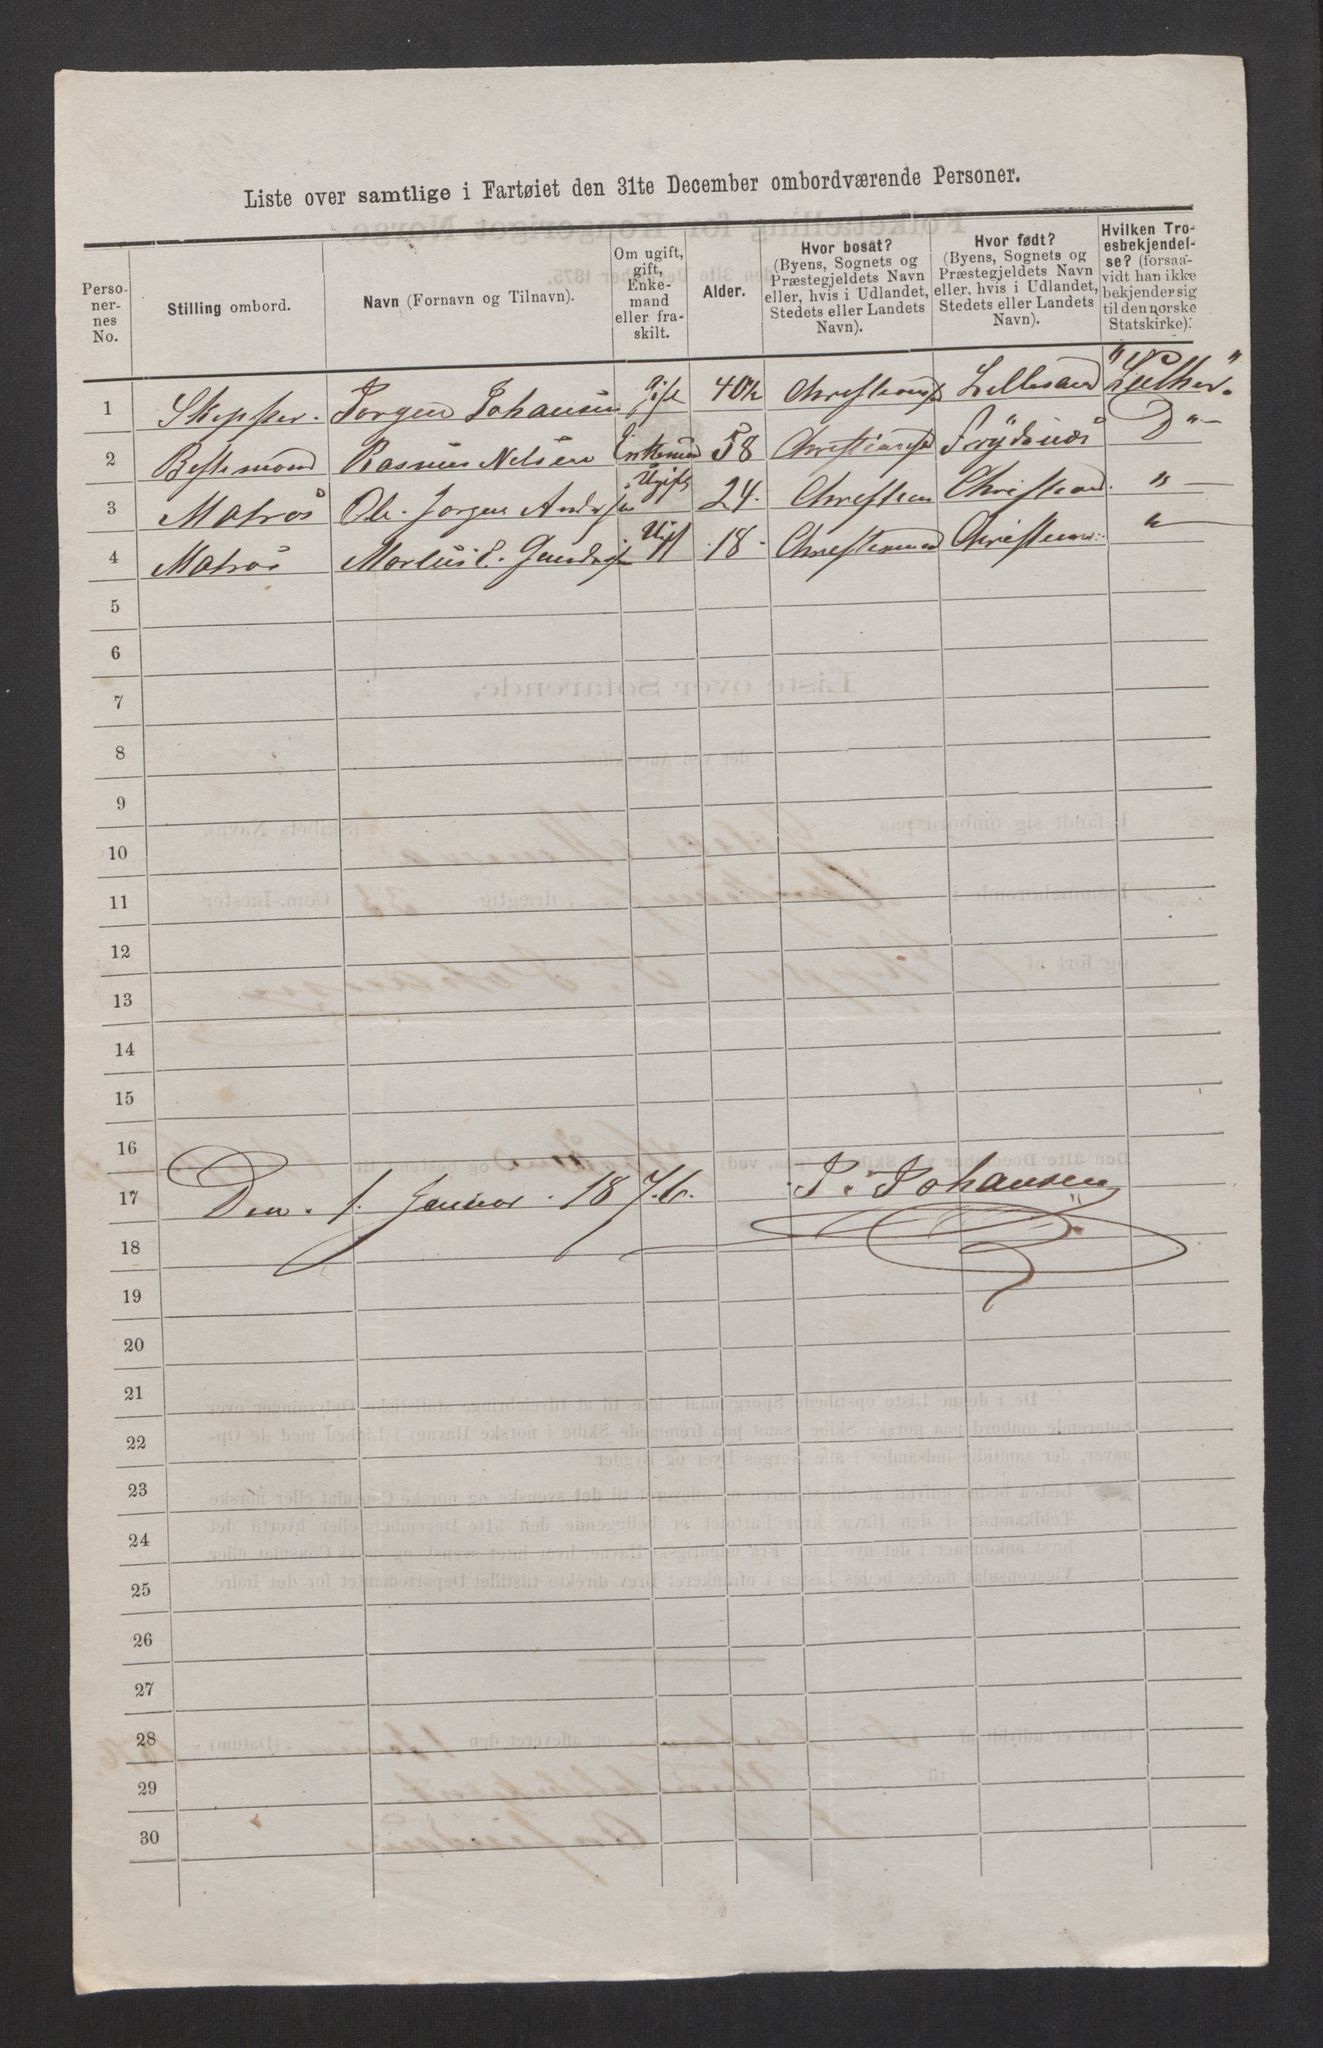 Liste over samtlige i Fartøiet den 31te December ombordværende Personer.
Personernes No. | Stilling ombord. | Navn (Fornavn og Tilnavn). | Om ugift, gift, Enkemand eller fraskilt. | Alder. | Hvor bosat? (Byens, Sognets og Præstegjeldets Navn eller, hvis i Udlandet, Stedets eller Landets Navn). | Hvor født? (Byens, Sognets og Præstegjeldets Navn eller, hvis i Udlandet, Stedets eller Landets Navn). | Hvilken Troesbekjendelse? (forsaavidt han ikke bekjender sig til den norske Statskirke).
1 Skipper. Jorgen Johansen Gift 40½ Lillesand "Luther"
2 Bestemand Rasmus Nelsen 58 D"
3 Matros Ole Jorgen Ugift 24. "
4 Matros 18. "
5
6
7
8
9
10
11
12
13
14
15
16
17 Den. 1. Januar. 1876. J. Johansen
18
19
20
21
22
23
24
25
26
27
28
29
30